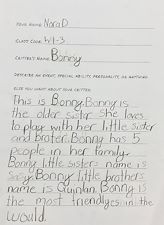 YOUR NAME: Nora D
CLASS CODE: W1-3
CRITTER'S NAME: Bonny
DESCRIBE AN EVENT, SPECIAL ABILITY, PERSONALITY OR ANYTHING
ELSE YOU WANT ABOUT YOUR CRITTER:
This is Bonny. Bonny is
the older sister She loves
to play with her little sister
and brater. Bonny has 5
people in her family.
Bonny little sisters name is
Sasy. Bonny little brothers
name is Quinlan. Bonny is
the most friendlyes in the
would.